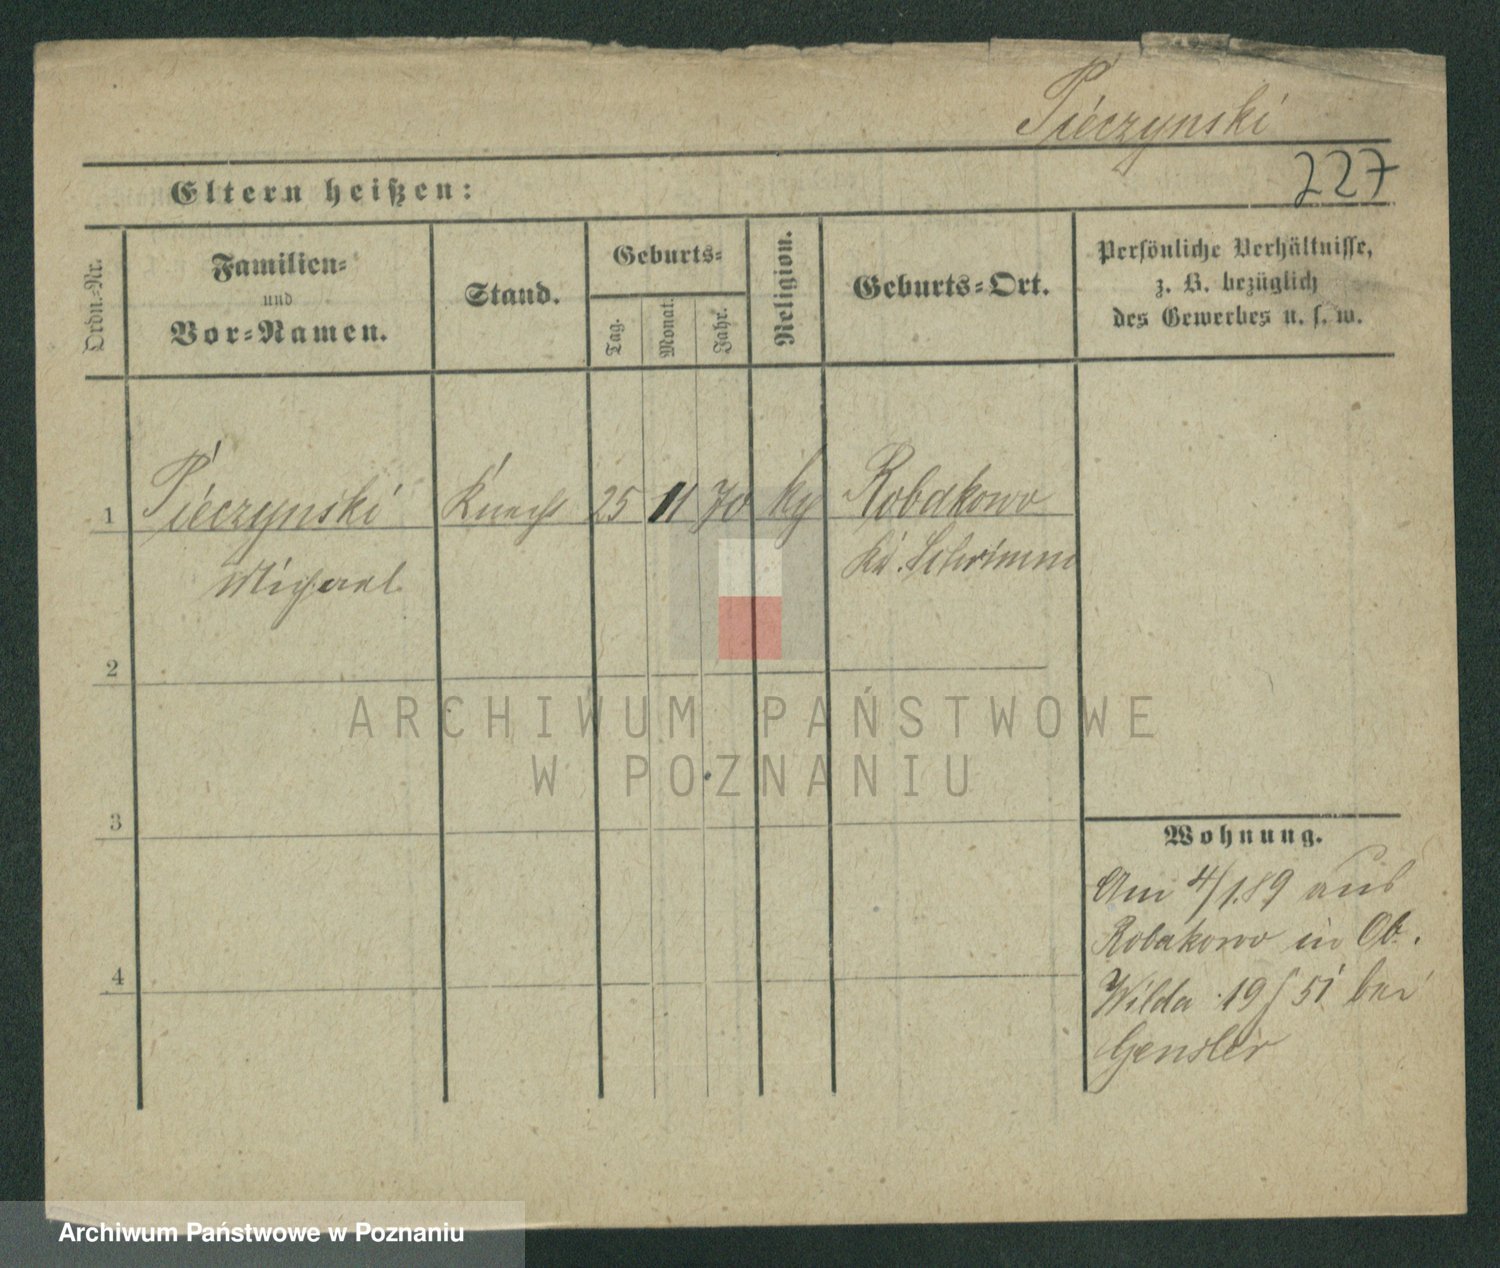 Pieczynski
227
Eltern heißen:
Ordn.-Nr.
Familien-
und
Vor-Namen.
Stand.
Geburts-
Tag.
Monat.
Jahr.
Religion.
Geburts-Ort.
Persönliche Verhältnisse,
z. B. bezüglich
des Gewerbes u. s. w.
1 Pieczynski Knecht 25 11 70 Robakowo
Michael Schrimm
2
3
4
Wohnung.
Am 4/1.89 aus
Robakowo in Ob.
Wilda 19/51 bei
Gensler
ARCHIWUM PAŃSTWOWE
W POZNANIU
Archiwum Państwowe w Poznaniu